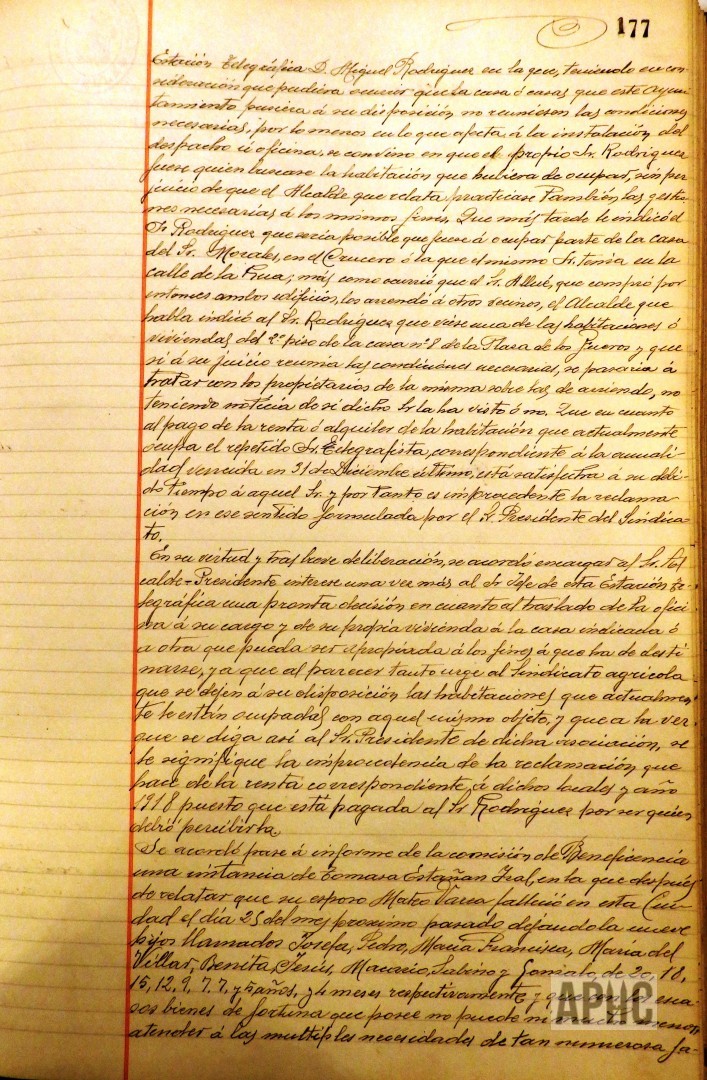 177
Estación Telegráfica D. Miguel Rodríguez en la que, teniendo en con-
sideración que pudiera ocurrir que la casa ó casas que este Ayun-
tamiento pusiera á su disposición no reuniesen las condiciones
necesarias, por lo menos en lo que afecta, á la instalación del
despacho ú oficina, se convino en que el propio Sr. Rodríguez
fuese quien buscase la habitación que hubiera de ocupar, sin per
juicio de que el Alcalde que relata practicase también las gestio-
nes necesarias á los mismos fines. Que más tarde le indicó el
Sr Rodríguez que sería posible que fuese á ocupar parte de la casa
del Sr. Morales, en el Crucero ó la que el mismo Sr. tenía en la
calle de la Rua; más como ocurrió que el Sr. Allué, que compró por
entonces ambos edificios, los arrendó á otros vecinos, el Alcalde que
habla indicó al Sr. Rodríguez que viese una de las habitaciones ó
viviendas del 2º piso de la casa nº 8 de la Plaza de los Fueros y que
si á su juicio reunía las condiciones necesarias, se pasaría á
tratar con los propietarios de la misma sobre las de arriendo, no
teniendo noticia de si dicho Sr la ha visto ó no. Que en cuanto
al pago de la renta ó alquiler de la habitación que actualmente
ocupa el repetido Sr. Telegrafista, correspondiente á la anuali-
dad vencida en 31 de Diciembre último, está satisfecha á su debi-
do tiempo á aquel Sr. y por tanto es improcedente la reclama
ción en ese sentido formulada por el Sr. Presidente del Sindica-
to.
En su virtud y tras breve deliberación, se acordó encargar al Sr. Al-
calde=Presidente interese una vez más al Sr Jefe de esta Estación te-
legráfica una pronta decisión en cuanto al traslado de la ofici
na á su cargo y de su propia vivienda á la casa indicada ó
a otra que pueda ser apropiada á los fines á que ha de desti
narse, ya que al parecer tanto urge al Sindicato agrícola
que se dejen á su disposición las habitaciones que actualmen
te le están ocupadas con aquel mismo objeto, y que a la vez
que se diga así al Sr. Presidente de dicha asociación, se
le signifique la improcedencia de la reclamación que
hace de la renta correspondiente á dichos locales y año
1918 puesto que está pagada al Sr Rodríguez por ser quien
debió percibirla.
Se acordó pase á informe de la comisión de Beneficencia
una instancia de Tomasa Estañan Iral, en la que después
de relatar que su esposo Mateo Varea falleció en esta Ciu-
dad el día 25 del mes proximo pasado dejándola nueve
hijos llamados Josefa, Pedro, María Francisca, María del
Villar, Benita, Jesús, Macario, Sabino y Gonzalo, de 20, 18,
15, 12, 9, 7, 7, y 5 años, y 4 meses respectivamente, y que en los esca
sos bienes de fortuna que posee no puede ni mucho menos
atender á las multiples necesidades de tan numerosa fa-
APHC